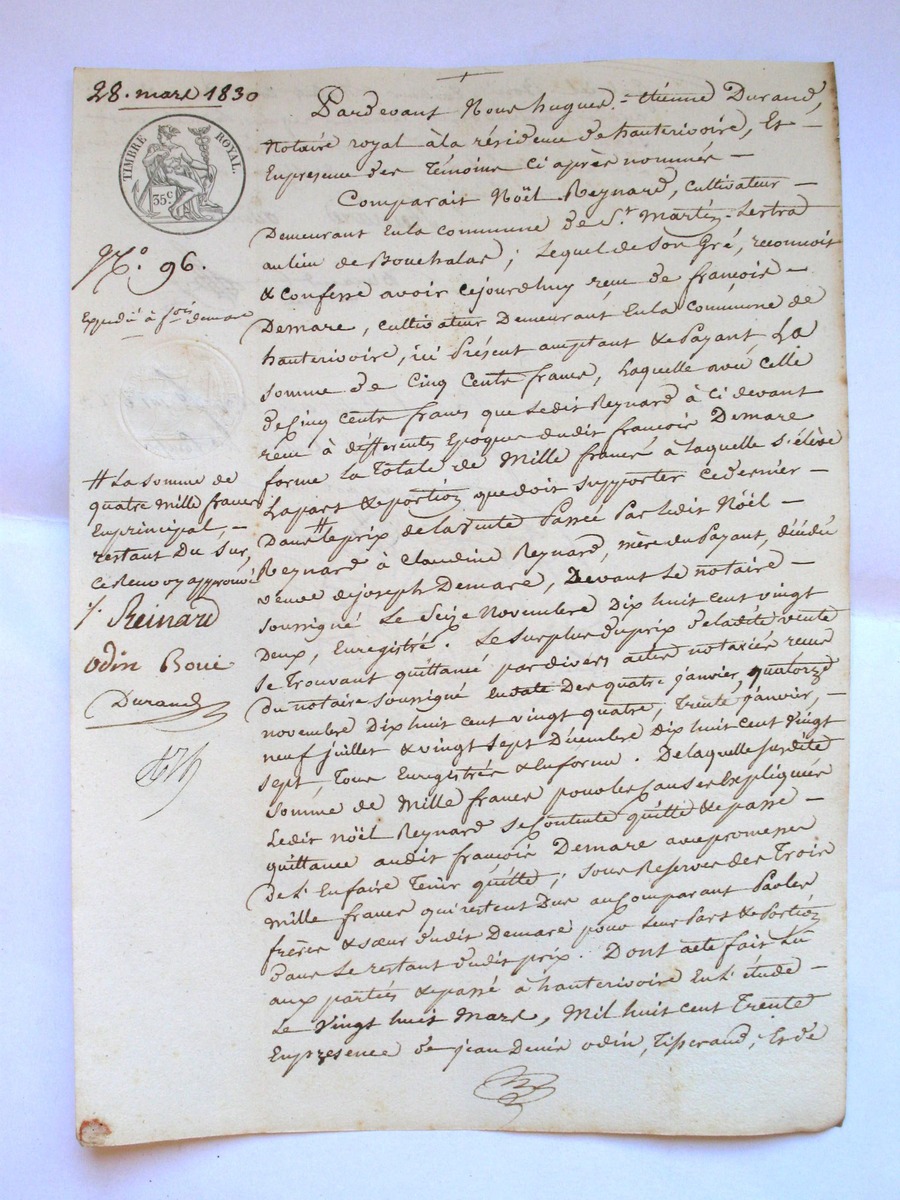 28. mars 1830
TIMBRE ROYAL.
35c
No. 96.
Expédié à fois demare
# La somme de
quatre mille francs
En principal, -
restant Du Sur,
Ce Renvoy approuvé
Reinard
odin Boui
Durand
Pardevant Nous hugues - étienne Durand,
Notaire royal à la résidence de hauterivoire, Et -
En presence des Témoins Ci après nommés -
Comparait Noël Reynard, Cultivateur -
Demeurant En la Commune de St. Martin-Lestra
au lieu de Bouchalas; Lequel de Son Gré, reconnoit
& Confesse avoir cejourdhuy reçu de françois -
Demare, Cultivateur Demeurant En la Commune de
hauterivoire, ici Présent acceptant & Payant La
Somme de Cinq Cents francs, Laquelle avec celle
de Cinq Cents francs que Ledit Reynard à Ci devant
reçu à différentes Epoques dudit françois Demare
forme la Totale de Mille francs à laquelle S'élève
La part & portion que doit Supporter Ce dernier -
Dans # le prix de la Vente Passée Par ledit Nöël -
Reynard à Claudine Reynard, mère du Payant, décédée
veuve de joseph Demare, Devant Le notaire -
soussigné Le Seize Novembre Dix huit Cent vingt
Deux, Enregistré. Le Surplus du prix de ladite vente
Se Trouvant quittancé par divers actes notariés reçus
Du Notaire Soussigné En date Des quatre janvier, quatorze
novembre Dix huit Cent vingt quatre; Trente janvier, -
neuf juillet & vingt Sept Décembre Dix huit Cent Vingt
Sept, Tous Enregistrés & En forme. De laquelle Susdite
Somme de Mille francs pour les Causes Expliquées
Ledit nöël Reynard Se Contente quitte & passe -
quittance audit françois Demare avec promesse
de L'En faire Tenir quitte; Sous Reserve des Trois
mille francs qui restent Dus au Comparant Par les
frères & sœur dudit Demare pour Leur Part & Portion
Dans Le restant dudit prix. Dont acte fait Lu
aux parties & passé à hauterivoire En L'étude -
Le Vingt huit Mars, Mil huit Cent Trente
En presence de jean Denis odin, Tisserand, Et de